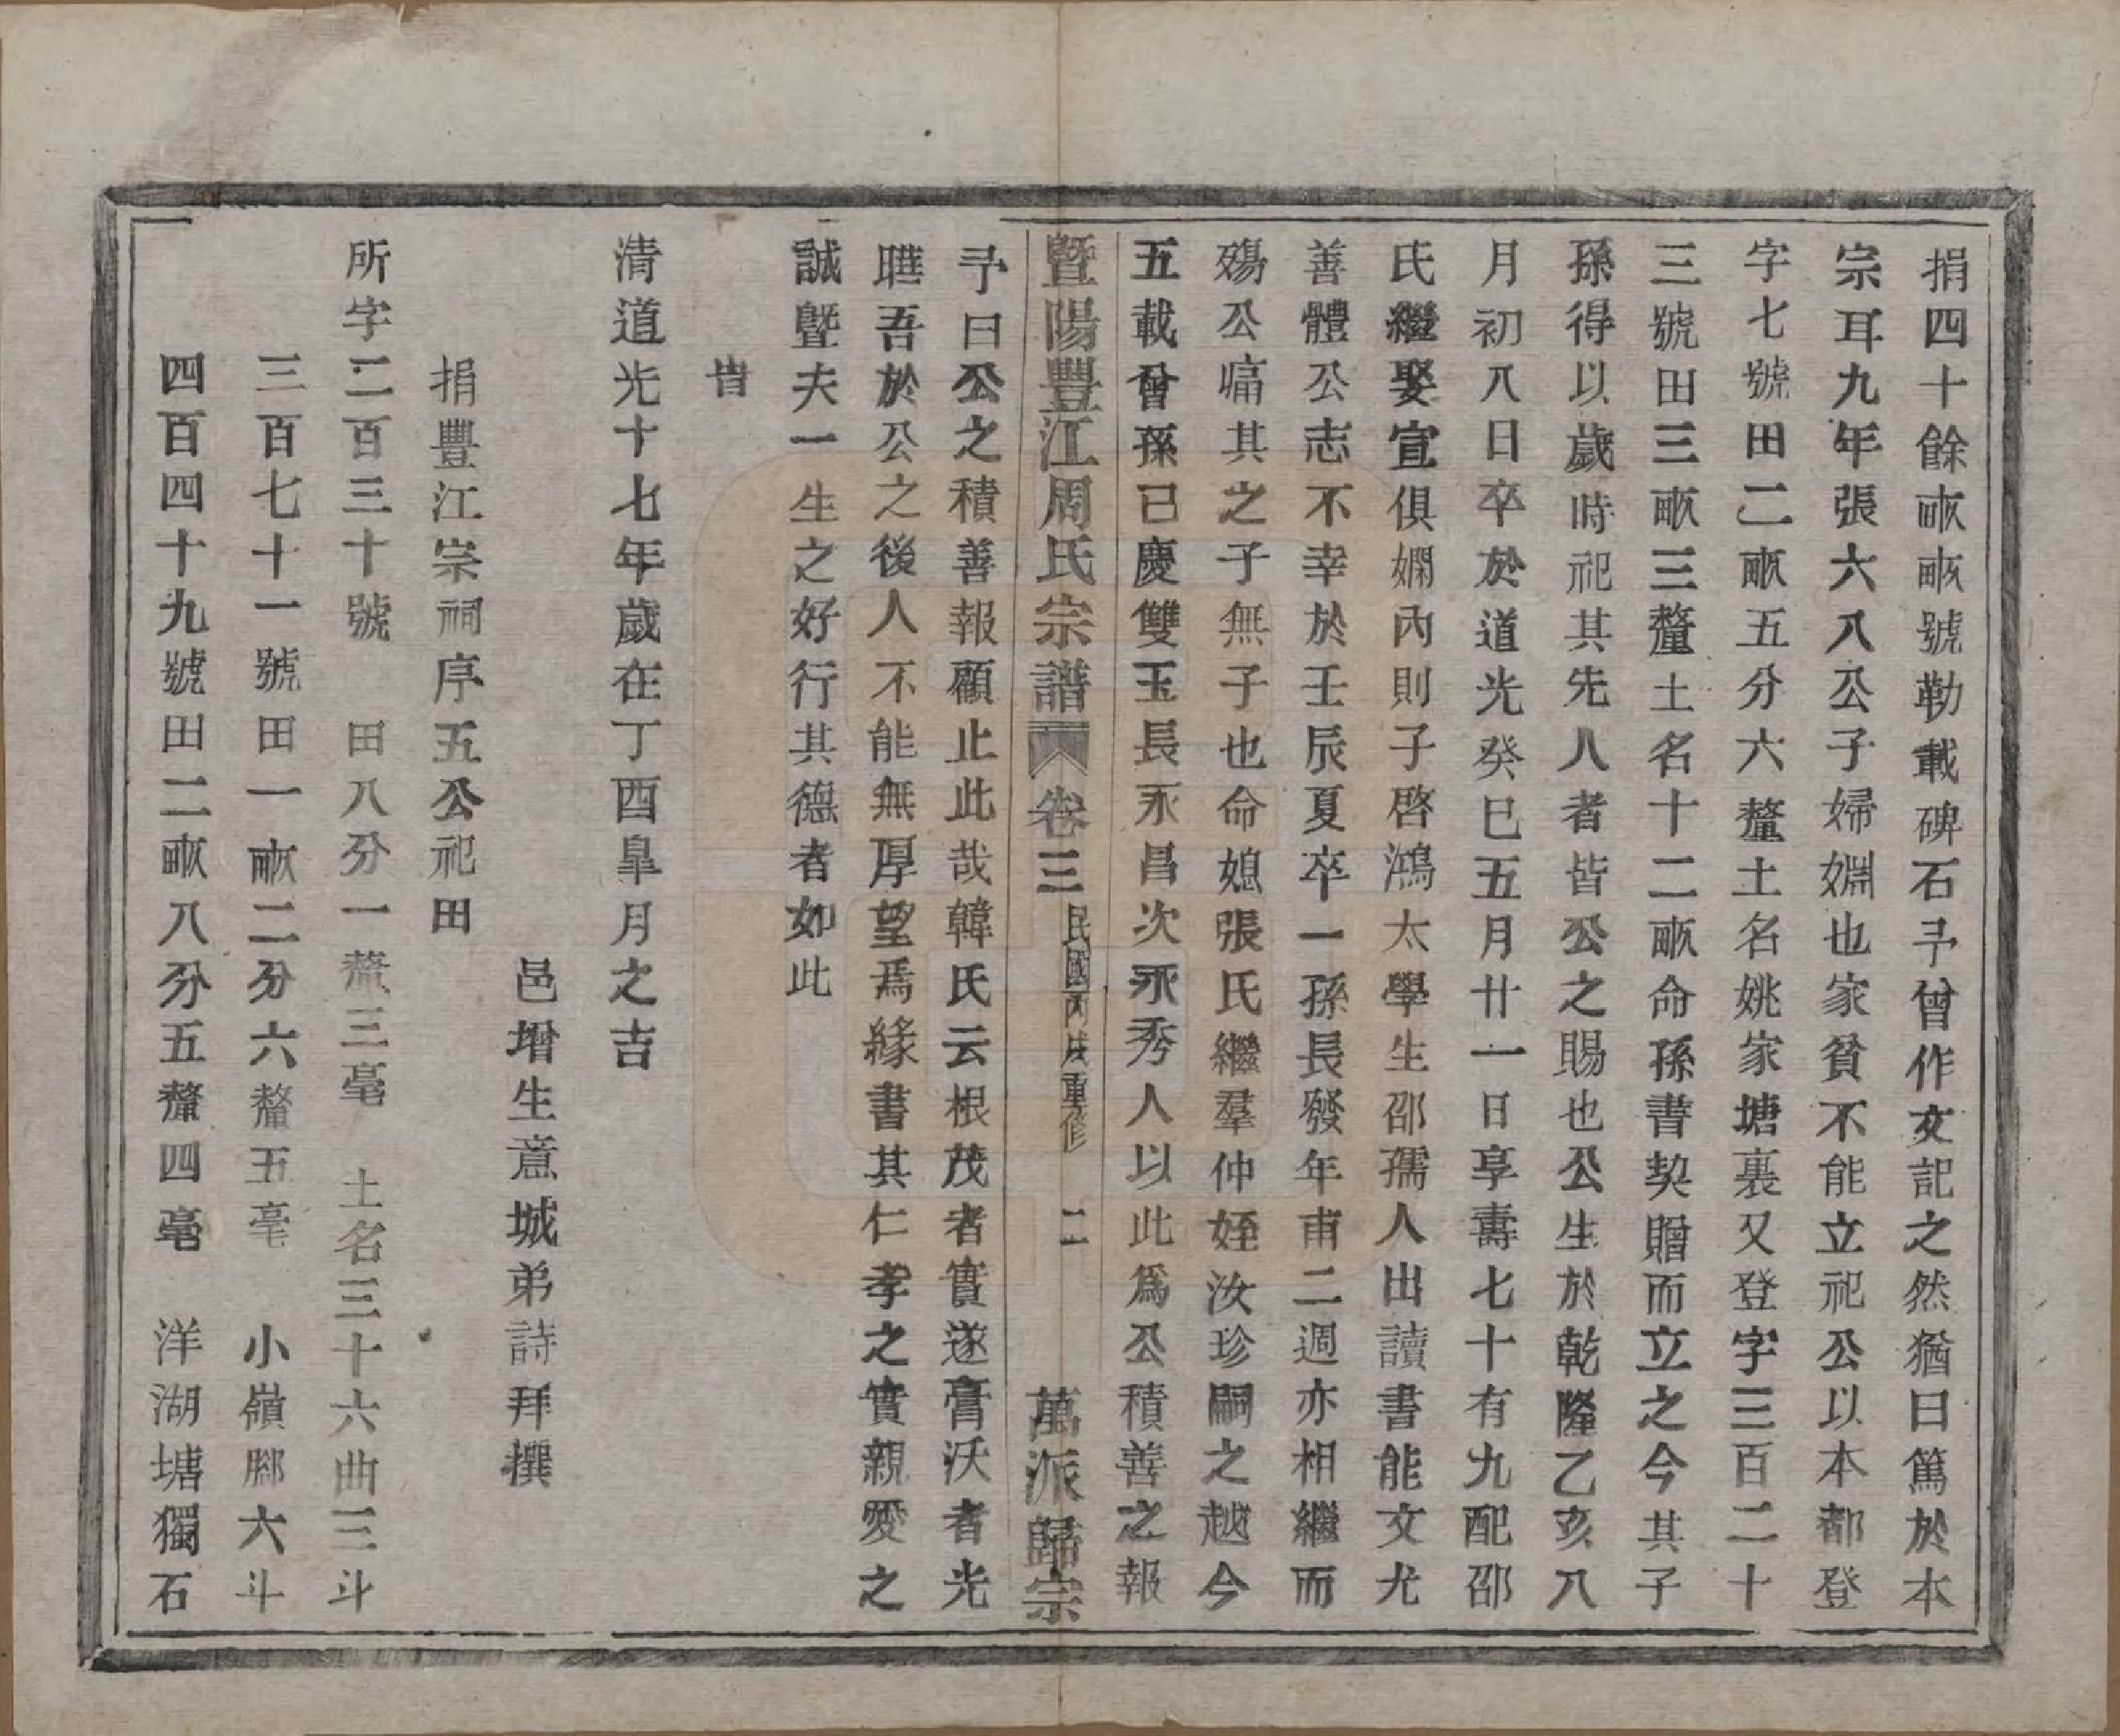 捐四十餘畝畝號勒載碑石予曾作文記之然猶曰篤於本
宗耳九年張六八公子婦婣也家貧不能立祀公以本都登
字七號田二畝五分六釐土名姚家塘裏又登字三百二十
三號田三畝三釐土名十二畝命孫書契贈而立之今其子
孫得以歲時祀其先人者皆公之賜也公生於乾隆乙亥八
月初八日卒於道光癸巳五月廿一日享壽七十有九配邵
氏繼娶宣俱嫻內則子啓鴻太學生邵孺人出讀書能文尤
善體公志不幸於壬辰夏卒一孫長發年甫二週亦相繼而
殤公痛其之子無子也命媳張氏繼羣仲姪汝珍嗣之越今
五載曾孫已慶雙玉長永昌次永秀人以此爲公積善之報
暨陽豐江周氏宗譜 卷三 民國丙戌重修 二 萬派歸宗
予曰公之積善報顧止此哉韓氏云根茂者實遂膏沃者光
曄吾於公之後人不能無厚望焉緣書其仁孝之實親愛之
誠曁夫一生之好行其德者如此
旹
清道光十七年歲在丁酉皐月之吉
邑增生意城弟詩拜撰
捐豐江宗祠序五公祀田
所字二百三十號 田八分一釐三毫 土名三十六曲三斗
三百七十一號田一畝二分六釐五毫 小嶺腳六斗
四百四十九號田二畝八分五釐四毫 洋湖塘獨石